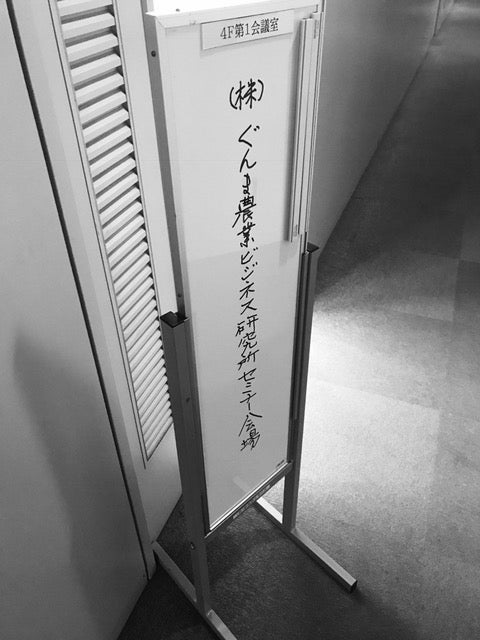 4F第1会議室
(株)ぐんま農業ビジネス研究所セミナー会場